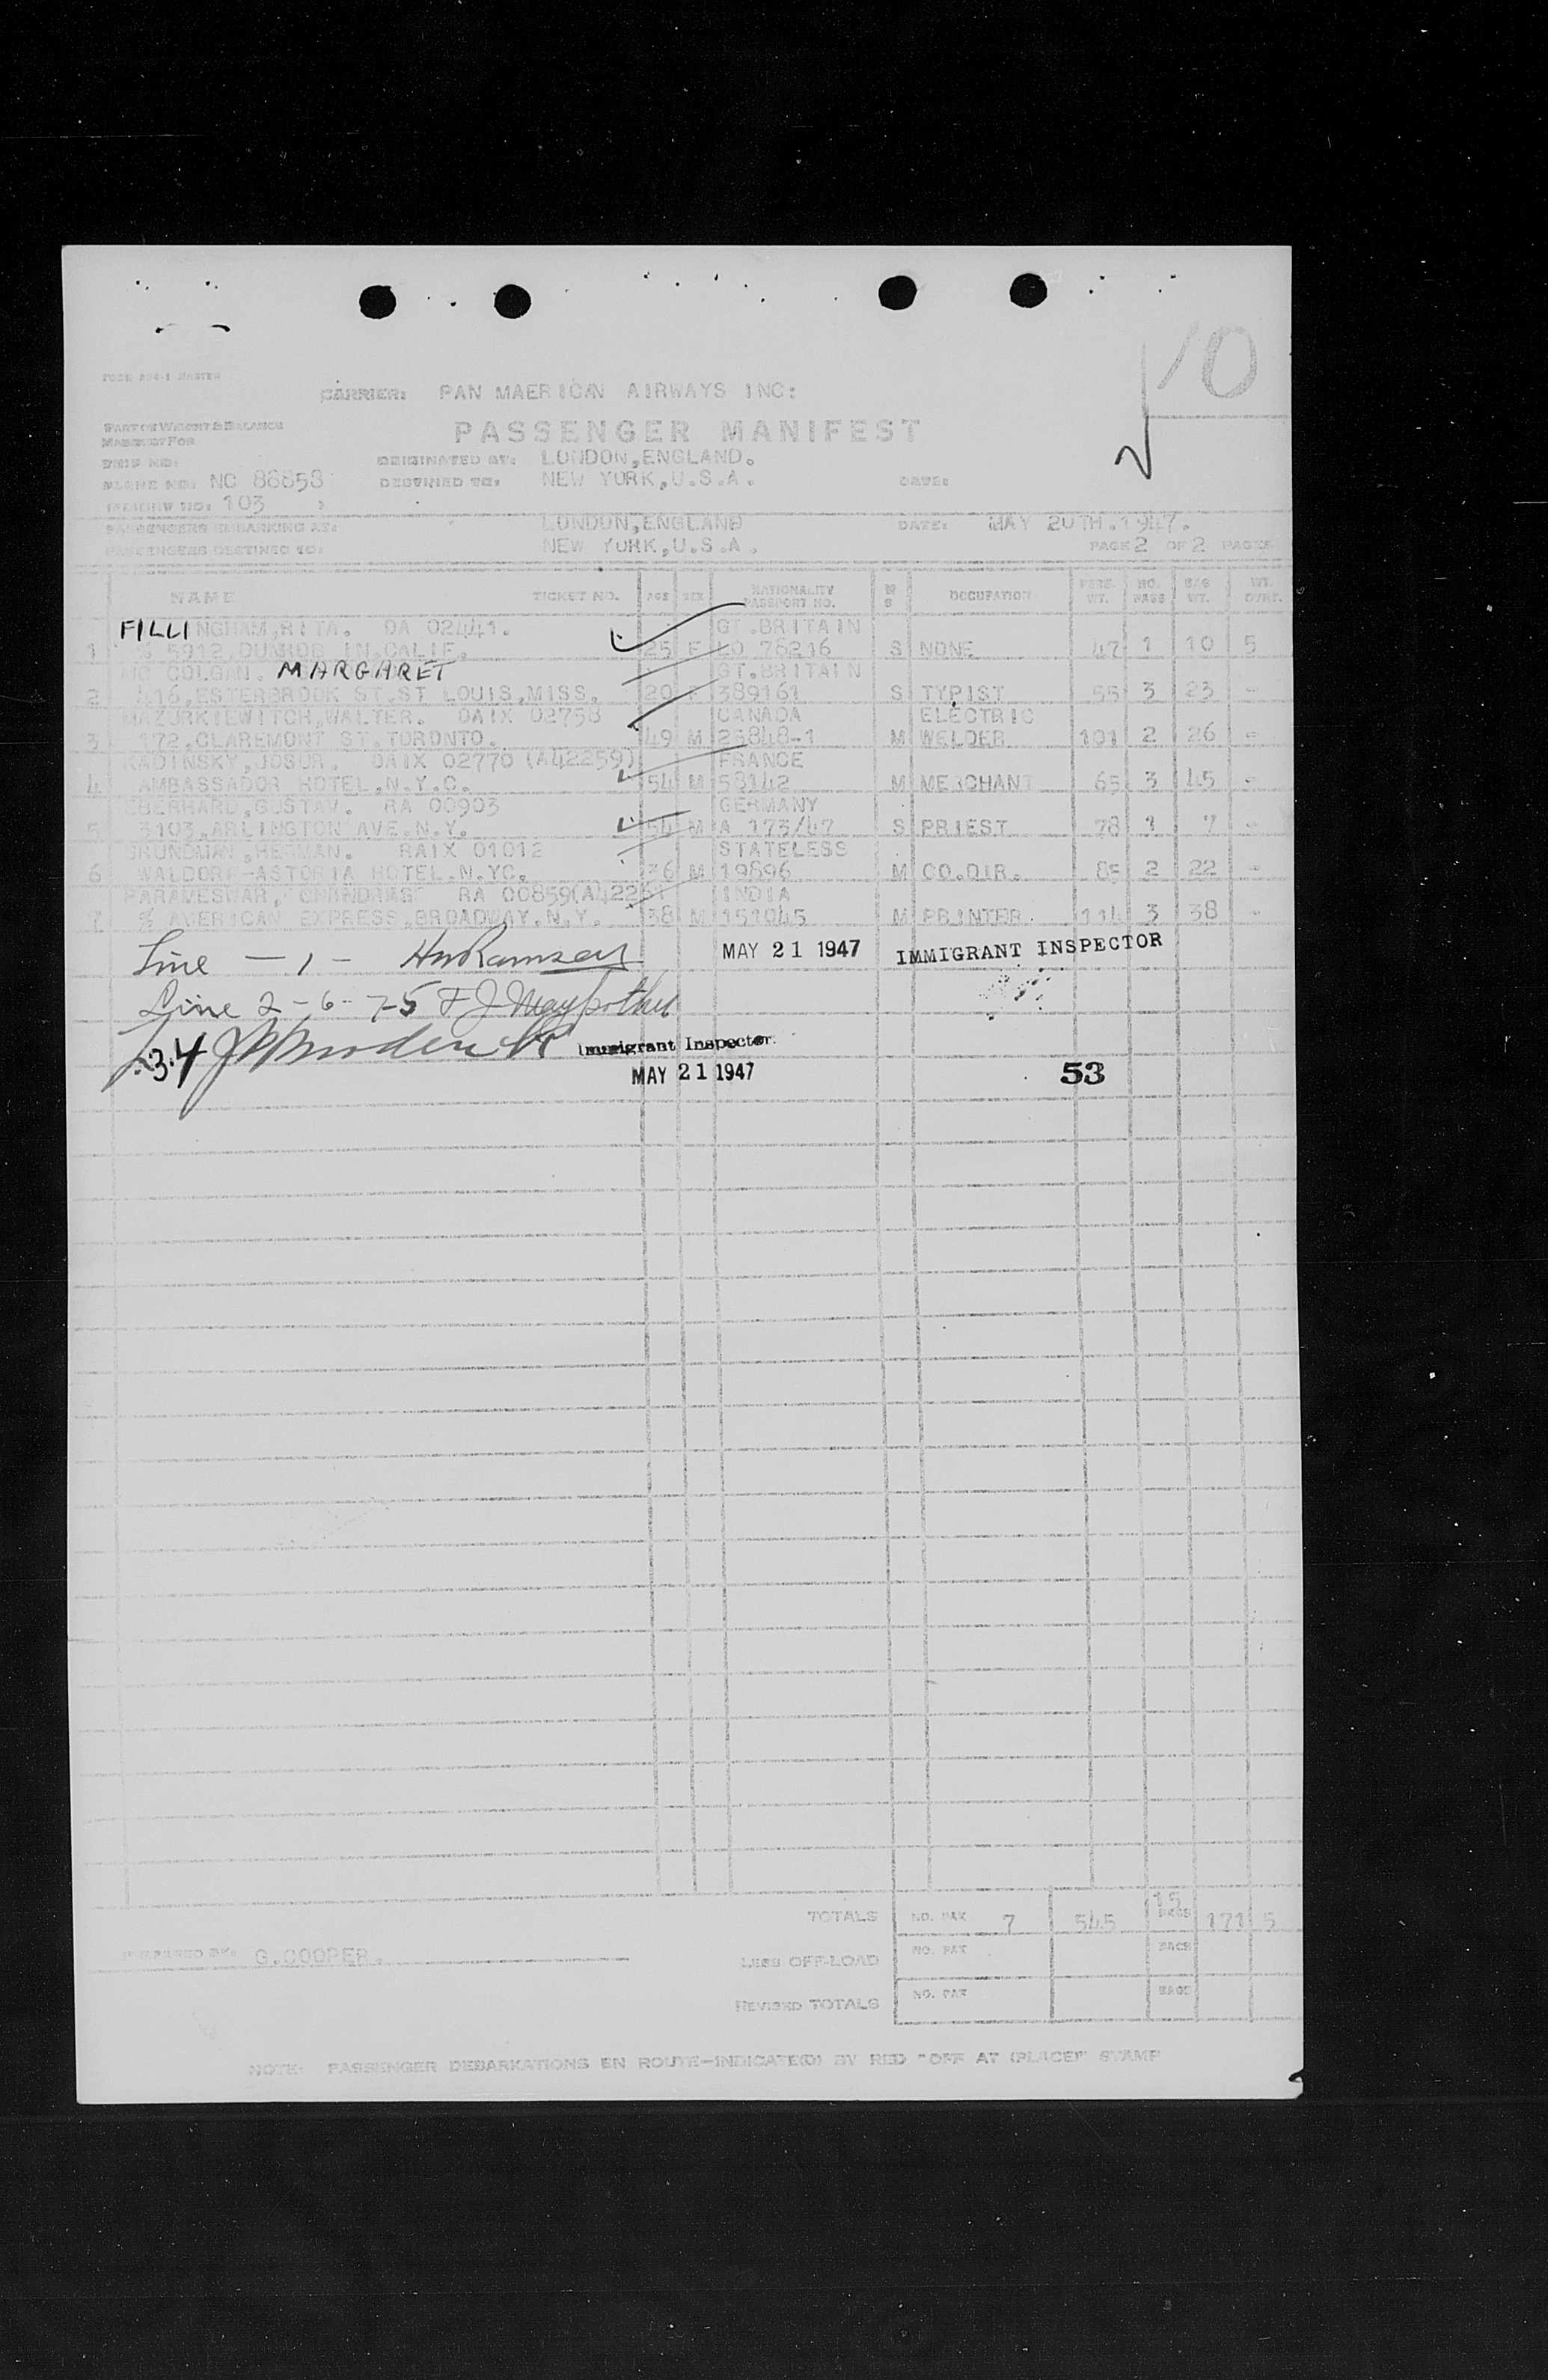 10
CARRIER: PAN MAERICAN AIRWAYS INC:
PART OF WEIGHT & BALANCE
MANIFEST FOR
PASSENGER MANIFEST
TRIP NO:
ORIGINATED AT: LONDON,ENGLAND.
PLANE NO: NC 88858 DESTINED TO: NEW YORK,U.S.A. DATE:
103
PASSENGERS EMBARKING AT: LONDON,ENGLAND DATE: MAY 20TH.1947.
PASSENGERS DESTINED TO: NEW YORK,U.S.A. PAGE 2 OF 2 PAGES
NAME TICKET NO. AGE SEX NATIONALITY PASSPORT NO. M S OCCUPATION PERS. WT. NO. PASS BAG WT. WT. OVRF.
FILLINGHAM,RITA. OA 02441. GT.BRITAIN
1 % 5912,DUNROB IN,CALIF. 25 F LO 76216 S NONE 47 1 10 5
MC COLGAN. MARGARET GT.BRITAIN
2 416,ESTERBROOK ST.ST LOUIS,MISS. 20 F 389161 S TYPIST 55 3 23 -
MAZURKIEWITCH,WALTER. OAIX 02758 CANADA ELECTRIC
3 172,CLAREMONT ST.TORONTO. 49 M 23848-1 M WELDER 101 2 26 -
KADINSKY,JOSUR. OAIX 02770 (A42259) FRANCE
4 AMBASSADOR HOTEL,N.Y.C. 54 M 58142 M MERCHANT 65 3 45 -
EBERHARD,GUSTAV. RA 00903 GERMANY
5 3103,ARLINGTON AVE.N.Y. 54 M A 173/47 S PRIEST 78 1 7 -
GRUNDMAN,HERMAN. RAIX 01012 STATELESS
6 WALDORF-ASTORIA HOTEL.N.YC. 36 M 19896 M CO.DIR. 85 2 22 -
PARAMESWAR, RA 00859 INDIA
7 % AMERICAN EXPRESS,BROADWAY.N.Y. 38 M 151045 M PRINTER 114 3 38 -
Line - 1 - HW Ramsey MAY 21 1947 IMMIGRANT INSPECTOR
Line 2-6-7-5 F J
L.3.4 Immigrant Inspector
MAY 21 1947 53
TOTALS NO. PAX 7 545 15 BAGS 171 5
PREPARED BY: G.COOPER. LESS OFF-LOAD NO. PAX BAGS
REVISED TOTALS NO. PAX BAGS
NOTE: PASSENGER DEBARKATIONS EN ROUTE-INDICATE(D) BY RED "OFF AT (PLACE)" STAMP